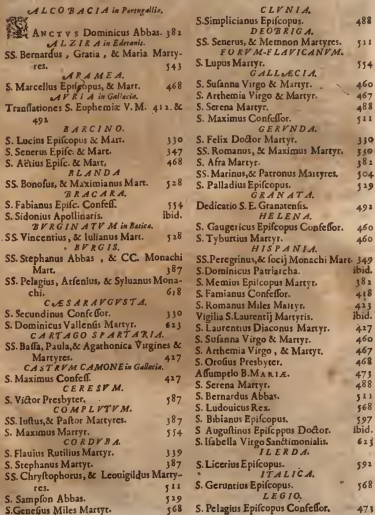 ALCOBACIA in Portugallia.
SANCTVS Dominicus Abbas. 382
ALZIRA in Edetanis.
SS. Bernardus, Gratia, & Maria Martyres. 543
ARAMEA.
S. Marcellus Episcopus, & Mart. 468
AVRIA in Gallacia.
Translationes S. Euphemiæ V.M. 412. & 492
BARCINO.
S. Lucius Episcopus & Mart. 330
S. Seuerus Episc. & Mart. 347
S. Aëtius Episc. & Mart. 468
BLANDA
SS. Bonosus, & Maximianus Mart. 528
BRACARA.
S. Fabianus Episc. Confess. 554
S. Sidonius Apollinaris. ibid.
BVRGINATVM in Batica.
SS. Vincentius, & Iulianus Mart. 528
BVRGIS.
SS. Stephanus Abbas, & CC. Monachi
Mart. 387
SS. Pelagius, Arsenius, & Syluanus Monachi. 618
CÆSARAVGVSTA.
S. Secundinus Confessor. 330
S. Dominicus Vallensis Martyr. 623
CARTAGO SPARTARIA.
SS. Bassa, Paula, & Agathonica Virgines &
Martyres. 427
CASTRVM CAMONE in Gallacia.
S. Maximus Confess. 427
CERESVM.
S. Victor Presbyter. 587
COMPLVTVM.
SS. Iustus, & Pastor Martyres. 387
S. Maximus Martyr. 554
CORDVBA.
S. Flauius Rutilius Martyr. 339
S. Stephanus Martyr. 387
SS. Chrystophorus, & Leouigildus Martyres. 511
S. Sampson Abbas. 529
S. Genesius Miles Martyr. 568
CLVNIA.
S. Simplicianus Episcopus. 488
DEOBRIGA.
SS. Seuerus, & Memnon Martyres. 511
FORVM-FLAVICANVM.
S. Lupus Martyr. 554
GALLÆCIA.
S. Susanna Virgo & Martyr. 460
S. Arthemia Virgo & Martyr. 467
S. Serena Martyr. 488
S. Maximus Confessor. 511
GERVNDA.
S. Felix Doctor Martyr. 330
SS. Romanus, & Maximus Martyr. 330
S. Afra Martyr. 382
SS. Marinus, & Patronus Martyres. 504
S. Palladius Episcopus. 529
GRANATA.
Dedicatio S.E. Granatensis. 492
HELENA.
S. Gaugericus Episcopus Confessor. 460
S. Tyburtius Martyr. 460
HISPANIA.
SS. Peregrinus, & socij Monachi Mart. 349
S. Dominicus Patriarcha. ibid.
S. Memius Episcopus Martyr. 382
S. Famianus Confessor. 418
S. Romanus Miles Martyr. 423
Vigilia S. Laurentij Martyris. ibid.
S. Laurentius Diaconus Martyr. 427
S. Susanna Virgo & Martyr. 460
S. Arthemia Virgo, & Martyr. 467
S. Orosius Presbyter. 468
Assumptio B. MARIÆ. 473
S. Serena Martyr. 488
S. Bernardus Abbas. 511
S. Ludouicus Rex. 568
S. Bibianus Episcopus. 597
S Augustinus Episcopus Doctor. ibid.
S. Isabella Virgo Sanctimonialis. 623
ILERDA.
S. Licerius Episcopus. 592
ITALICA.
S. Geruntius Episcopus. 568
LEGIO.
S. Pelagius Episcopus Confessor. 473